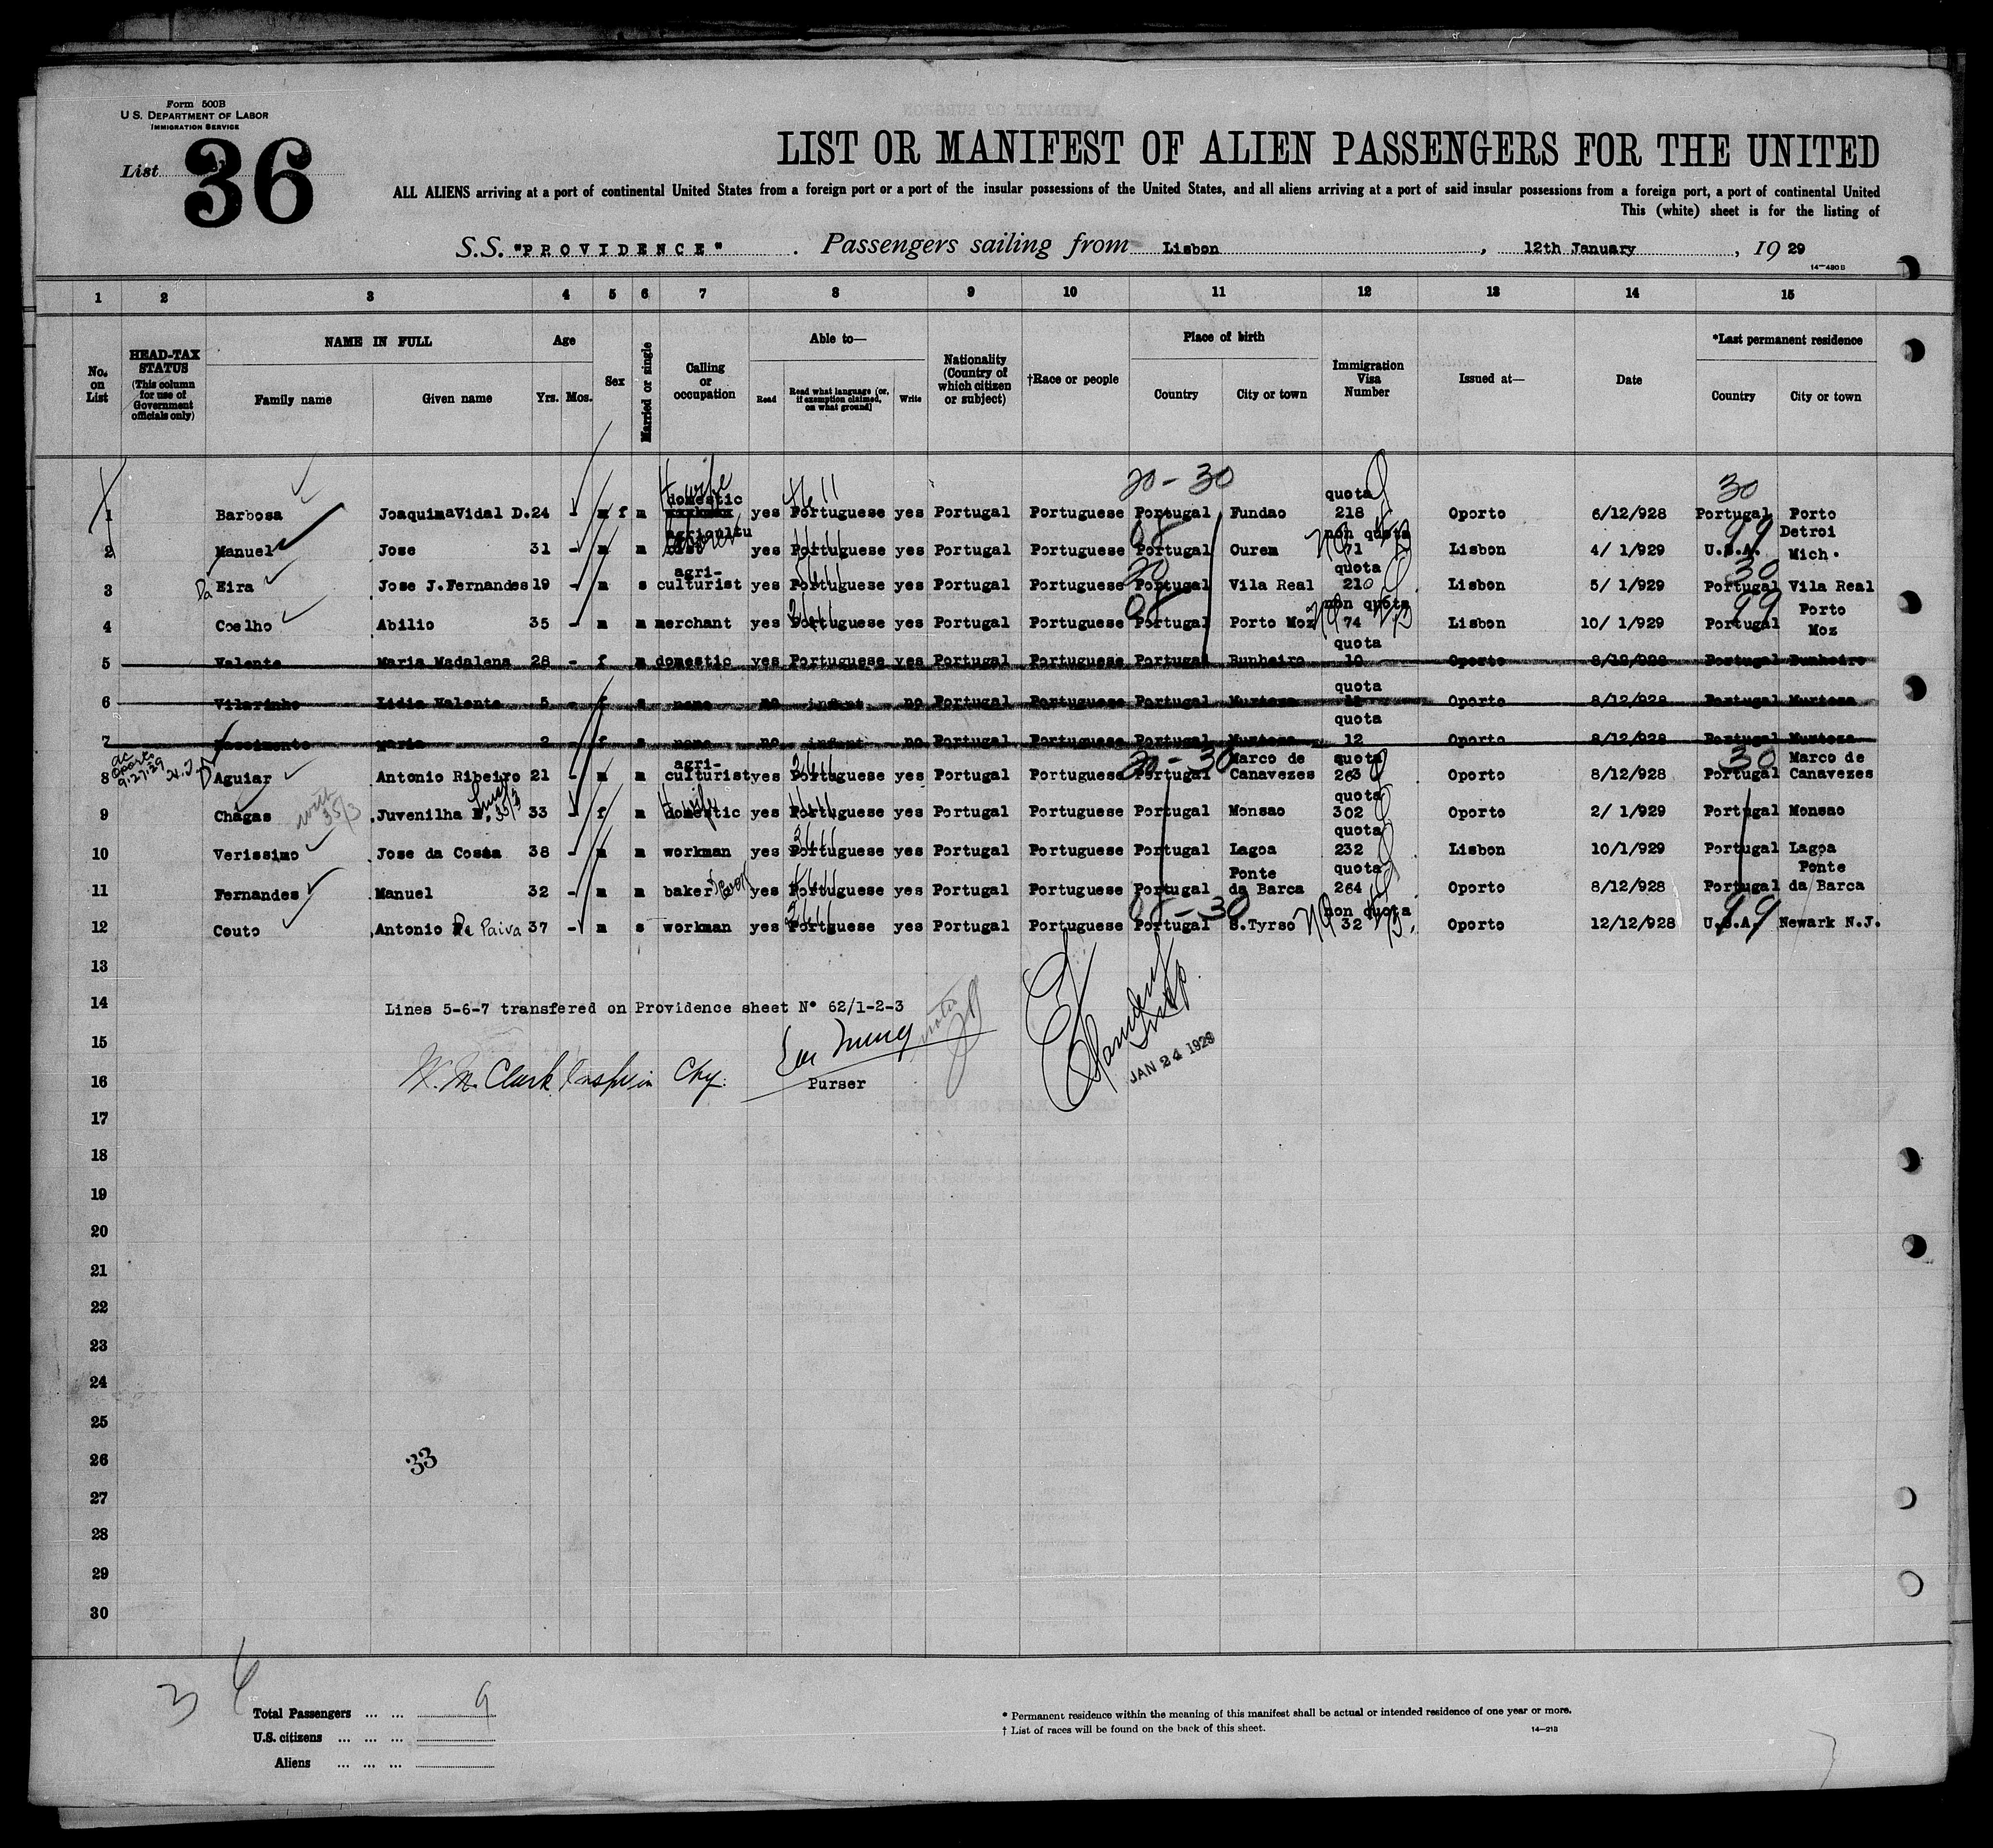 Form 500B
U.S. DEPARTMENT OF LABOR
IMMIGRATION SERVICE
List 36
LIST OR MANIFEST OF ALIEN PASSENGERS FOR THE UNITED
ALL ALIENS arriving at a port of continental United States from a foreign port or a port of the insular possessions of the United States, and all aliens arriving at a port of said insular possessions from a foreign port, a port of continental United
This (white) sheet is for the listing of
S.S. "PROVIDENCE". Passengers sailing from Lisbon, 12th January, 19 29
14—480 B
1 2 3 4 5 6 7 8 9 10 11 12 13 14 15
No. on List
HEAD-TAX STATUS (This column for use of Government officials only)
NAME IN FULL
Family name Given name
Age
Yrs. Mos.
Sex
Married or single
Calling or occupation
Able to—
Read Read what language (or, if exemption claimed, on what ground) Write
Nationality (Country of which citizen or subject)
†Race or people
Place of birth
Country City or town
Immigration Visa Number
Issued at—
Date
*Last permanent residence
Country City or town
20-30 30
wife
domestic quota
1 Barbosa Joaquima Vidal D. 24 - m f m yes Portuguese yes Portugal Portuguese Portugal Fundao 218 Oporto 6/12/928 Portugal Porto
agricultu non quota 99 Detroi
2 Manuel Jose 31 - m m yes Portuguese yes Portugal Portuguese Portugal Ourem 71 Lisbon 4/ 1/929 U.S.A. Mich.
agri- 20 quota 30
3 Da Eira Jose J.Fernandes 19 - m s culturist yes Portuguese yes Portugal Portuguese Portugal Vila Real 210 Lisbon 5/ 1/929 Portugal Vila Real
non quota 99 Porto
4 Coelho Abilio 35 - m m merchant yes Portuguese yes Portugal Portuguese Portugal Porto Moz 74 Lisbon 10/ 1/929 Portugal Moz
quota
5 Valente Maria Madalena 28 - f m domestic yes Portuguese yes Portugal Portuguese Portugal Bunheiro 10 Oporto 8/12/928 Portugal Bunheiro
quota
6 Vilarinho Lidia Valente 5 - f s none no infant no Portugal Portuguese Portugal Murtoza Oporto 8/12/928 Portugal Murtoza
quota
7 Nascimento Maria 2 - f s none no infant no Portugal Portuguese Portugal Murtoza 12 Oporto 8/12/928 Portugal Murtoza
Oporto 9.27.29 agri- 20-30 Marco de quota 30 Marco de
8 D' Aguiar Antonio Ribeiro 21 - m m culturist yes Portuguese yes Portugal Portuguese Portugal Canavezes 263 Oporto 8/12/928 Portugal Canavezes
35/3 wife quota
9 Chagas Juvenilha 35/3 33 - f m domestic yes Portuguese yes Portugal Portuguese Portugal Monsao 302 Oporto 2/ 1/929 Portugal Monsao
quota
10 Verissimo Jose da Costa 38 - m m workman yes Portuguese yes Portugal Portuguese Portugal Lagoa 232 Lisbon 10/1/929 Portugal Lagoa
Ponte quota Ponte
11 Fernandes Manuel 32 - m m baker yes Portuguese yes Portugal Portuguese Portugal da Barca 264 Oporto 8/12/928 Portugal da Barca
non quota 99
12 Couto Antonio De Paiva 37 - m s workman yes Portguese yes Portugal Portuguese Portugal S.Tyrso 32 Oporto 12/12/928 U.S.A. Newark N.J.
13
14 Lines 5-6-7 transfered on Providence sheet N° 62/1-2-3
15
16 W. M. Clark Purser
JAN 24 1929
17
18
19
20
21
22
23
24
25
26 33
27
28
29
30
Total Passengers ... ... 9
U.S. citizens ... ... ...
Aliens ... ... ...
* Permanent residence within the meaning of this manifest shall be actual or intended residence of one year or more.
† List of races will be found on the back of this sheet.
14—213